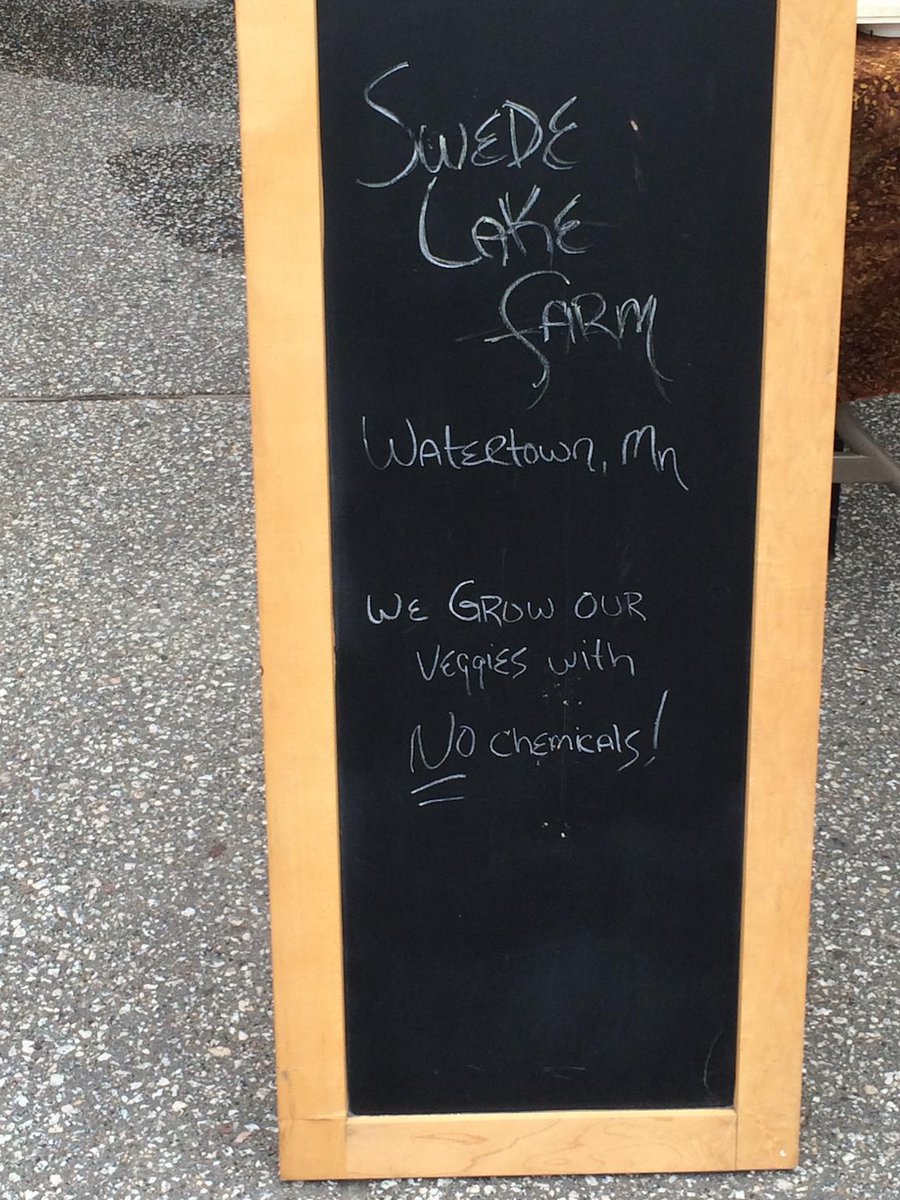 SWEDE
LAKE
FARM
Watertown, Mn
WE GROW OUR
VEGGIES with
NO chemicals!